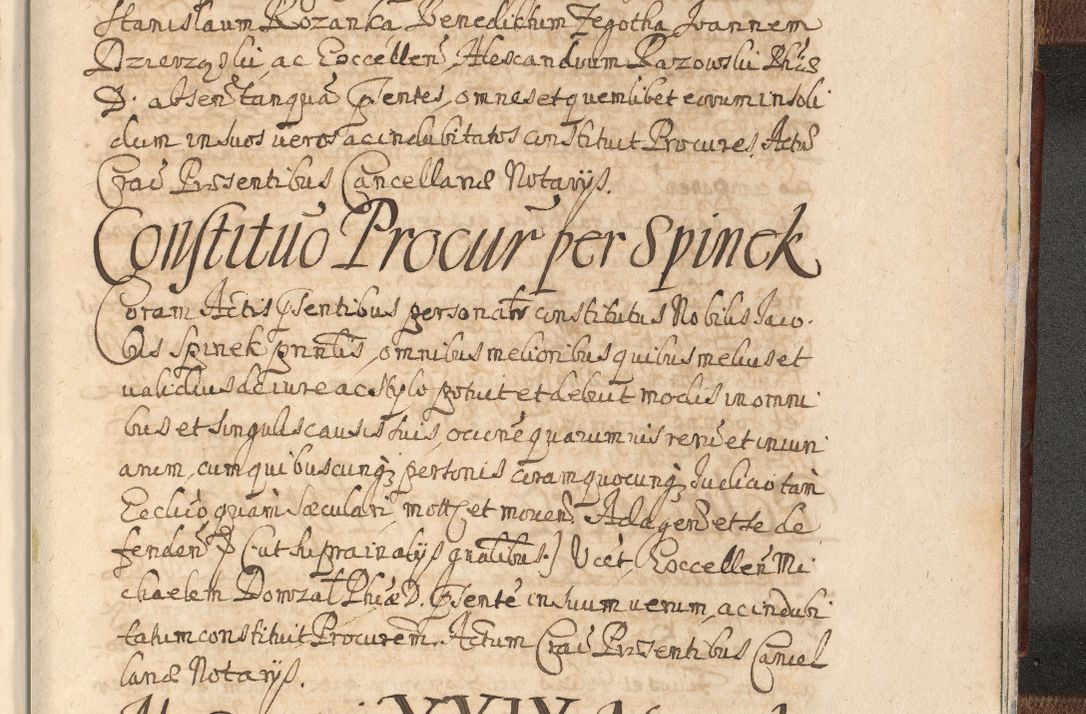 Stanislaum Rozanka Benedictum Zegotha Joannem
Dzierzgski, ac Excellen̄ Alexandrum Razowski Phiæ
D. absen̄ tanquā p̄sentes, omnes et quemlibet eorum in soli
dum in suos veros ac indubitatos constituit Procures. Actū
Crac̄ Præsentibus Cancellariæ Notarijs.
Constitutio Procur̄ per Spinek
Coram Actis p̄sentibus personalr̄ constitutus Nobilis Jaco-
bus Spinek pnnlis, omnibus melioribus quibus melius et
validius de iure ac stylo potuit et debuit modis in omni
bus et singulis causis suis, ocione quarumuis rerū et iniuri
arum, cum quibuscunq₃ personis coram quocunq₃ Judicio tam
Ecclico quam sæculari, motis et mouen̄ Ad agen̄ et se de
fenden̄ (ut supra in alijs gnalibus.) Ucet Excellen̄ Mi
chaelem Domzał Phiæ D. p̄sentē in suum verum, ac indubi
tatum constituit Procurem̄. Actum Crac̄ Præsentibus Cancel
lariæ Notarijs.
XXIX